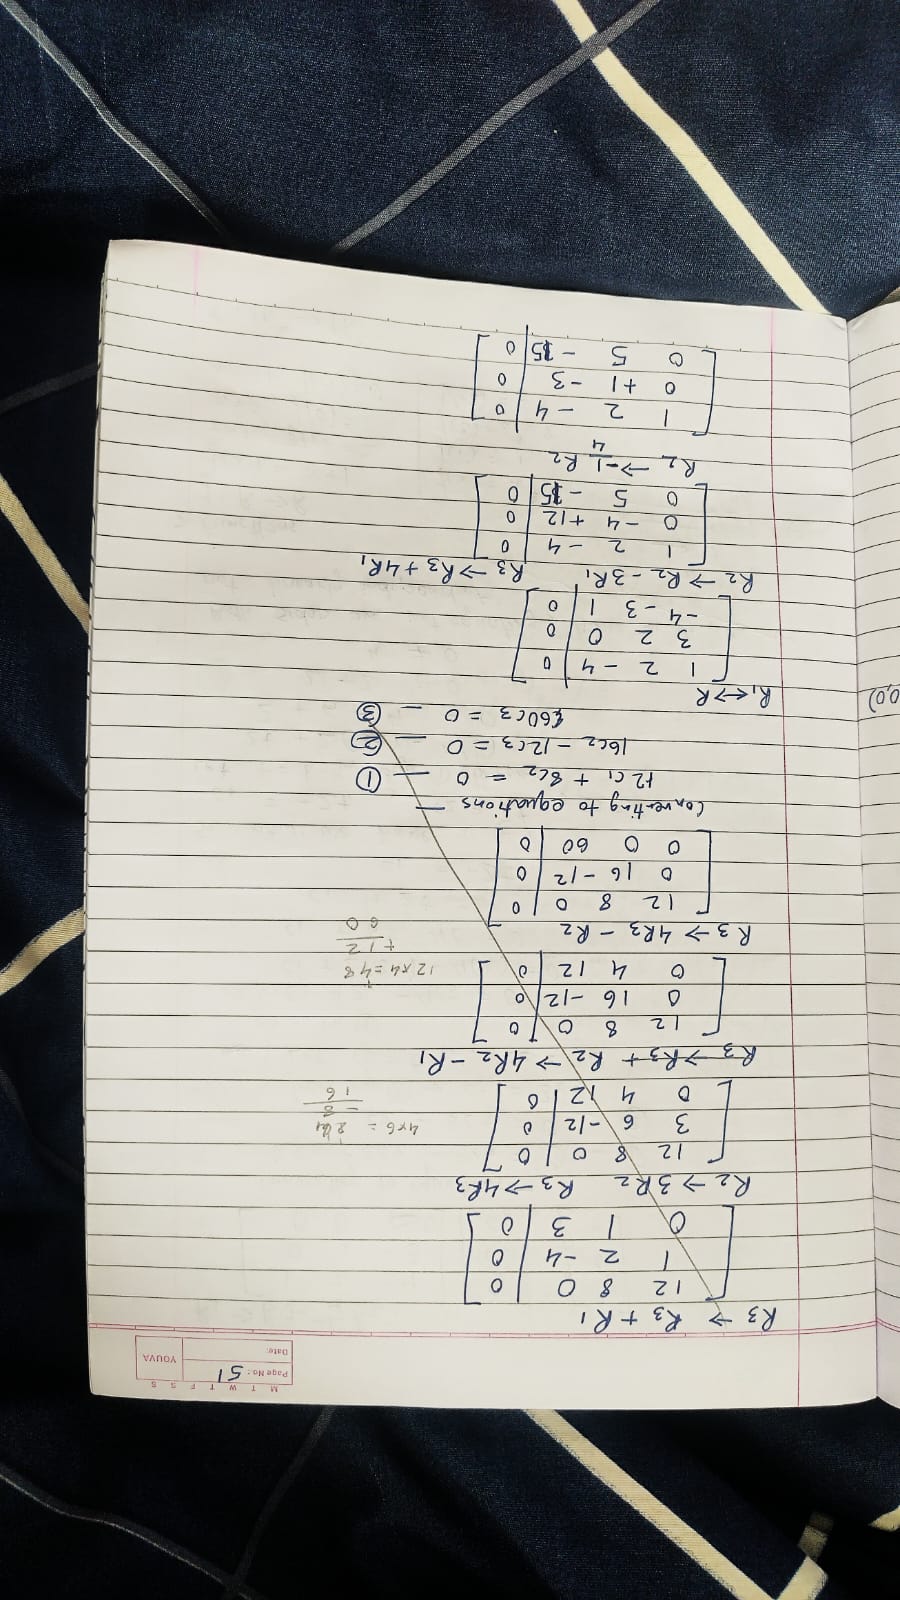 M T W T F S S
Page No.: 51
YOUVA
Date:
R3 → R3 + R1
12 8 0 | 0
1 2 -4 | 0
0 1 3 | 0
R2 → 3R2 R3 → 4R3
12 8 0 | 0
3 6 -12 | 0
0 4 12 | 0
4x6 = 24
- 8
16
R3 → R3 + R2 → 4R2 - R1
12 8 0 | 0
0 16 -12 | 0
0 4 12 | 0
12x4 = 48
+12
60
R3 → 4R3 - R2
12 8 0 | 0
0 16 -12 | 0
0 0 60 | 0
Converting to equations —
12c1 + 8c2 = 0 — ①
16c2 - 12c3 = 0 — ②
60c3 = 0 — ③
0,0)
R1 ↔ R
1 2 -4 | 0
3 2 0 | 0
-4 -3 1 | 0
R2 → R2 - 3R1 R3 → R3 + 4R1
1 2 -4 | 0
0 -4 +12 | 0
0 5 -15 | 0
R2 → -1/4 R2
1 2 -4 | 0
0 +1 -3 | 0
0 5 -15 | 0